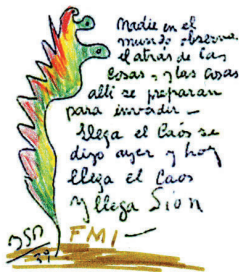 Nadie en el
mundo observa
el atrás de las
cosas, y las cosas
allí se preparan
para invadir –
Llega el Caos se
dijo ayer y hoy
llega el Caos
y llega Sion
FMI –
BSP